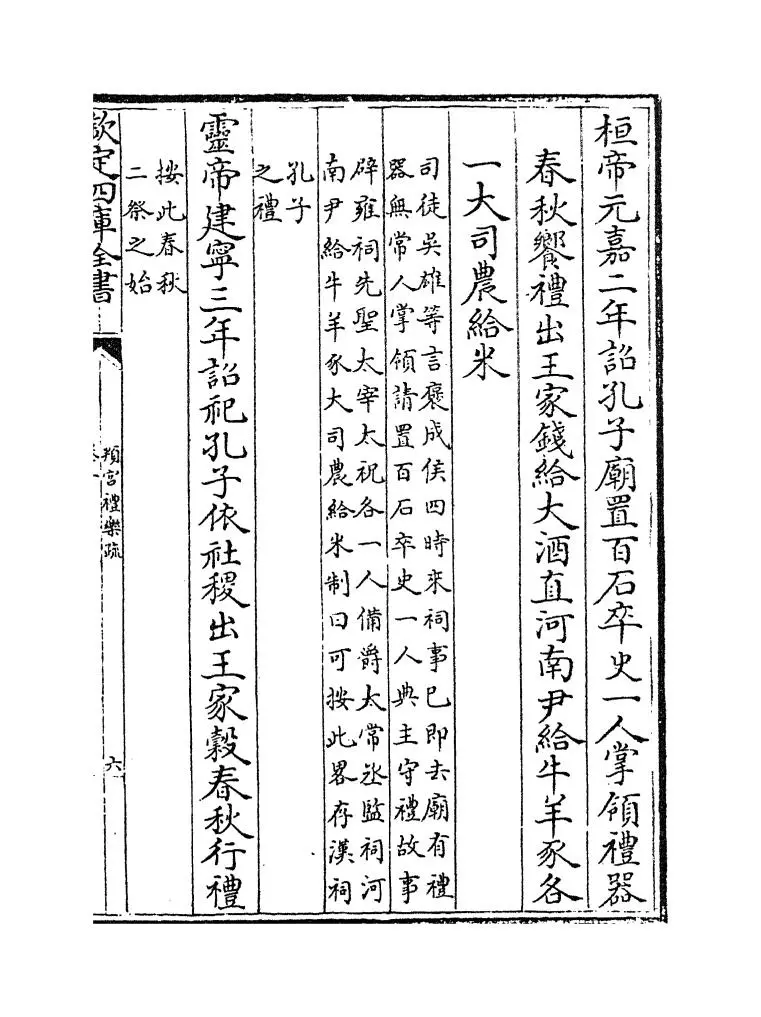 桓帝元嘉二年詔孔子廟置百石卒史一人掌領禮器
春秋饗禮出王家錢給大酒直河南尹給牛羊豕各
一大司農給米
司徒吳雄等言褒成侯四時來祠事已即去廟有禮
器無常人掌領請置百石卒史一人典主守禮故事
辟雍祠先聖太宰太祝各一人備爵太常丞監祠河
南尹給牛羊豕大司農給米制曰可按此畧存漢祠
孔子
之禮
靈帝建寧三年詔祀孔子依社稷出王家穀春秋行禮
按此春秋
二祭之始
欽定四庫全書
頖宮禮樂疏
六